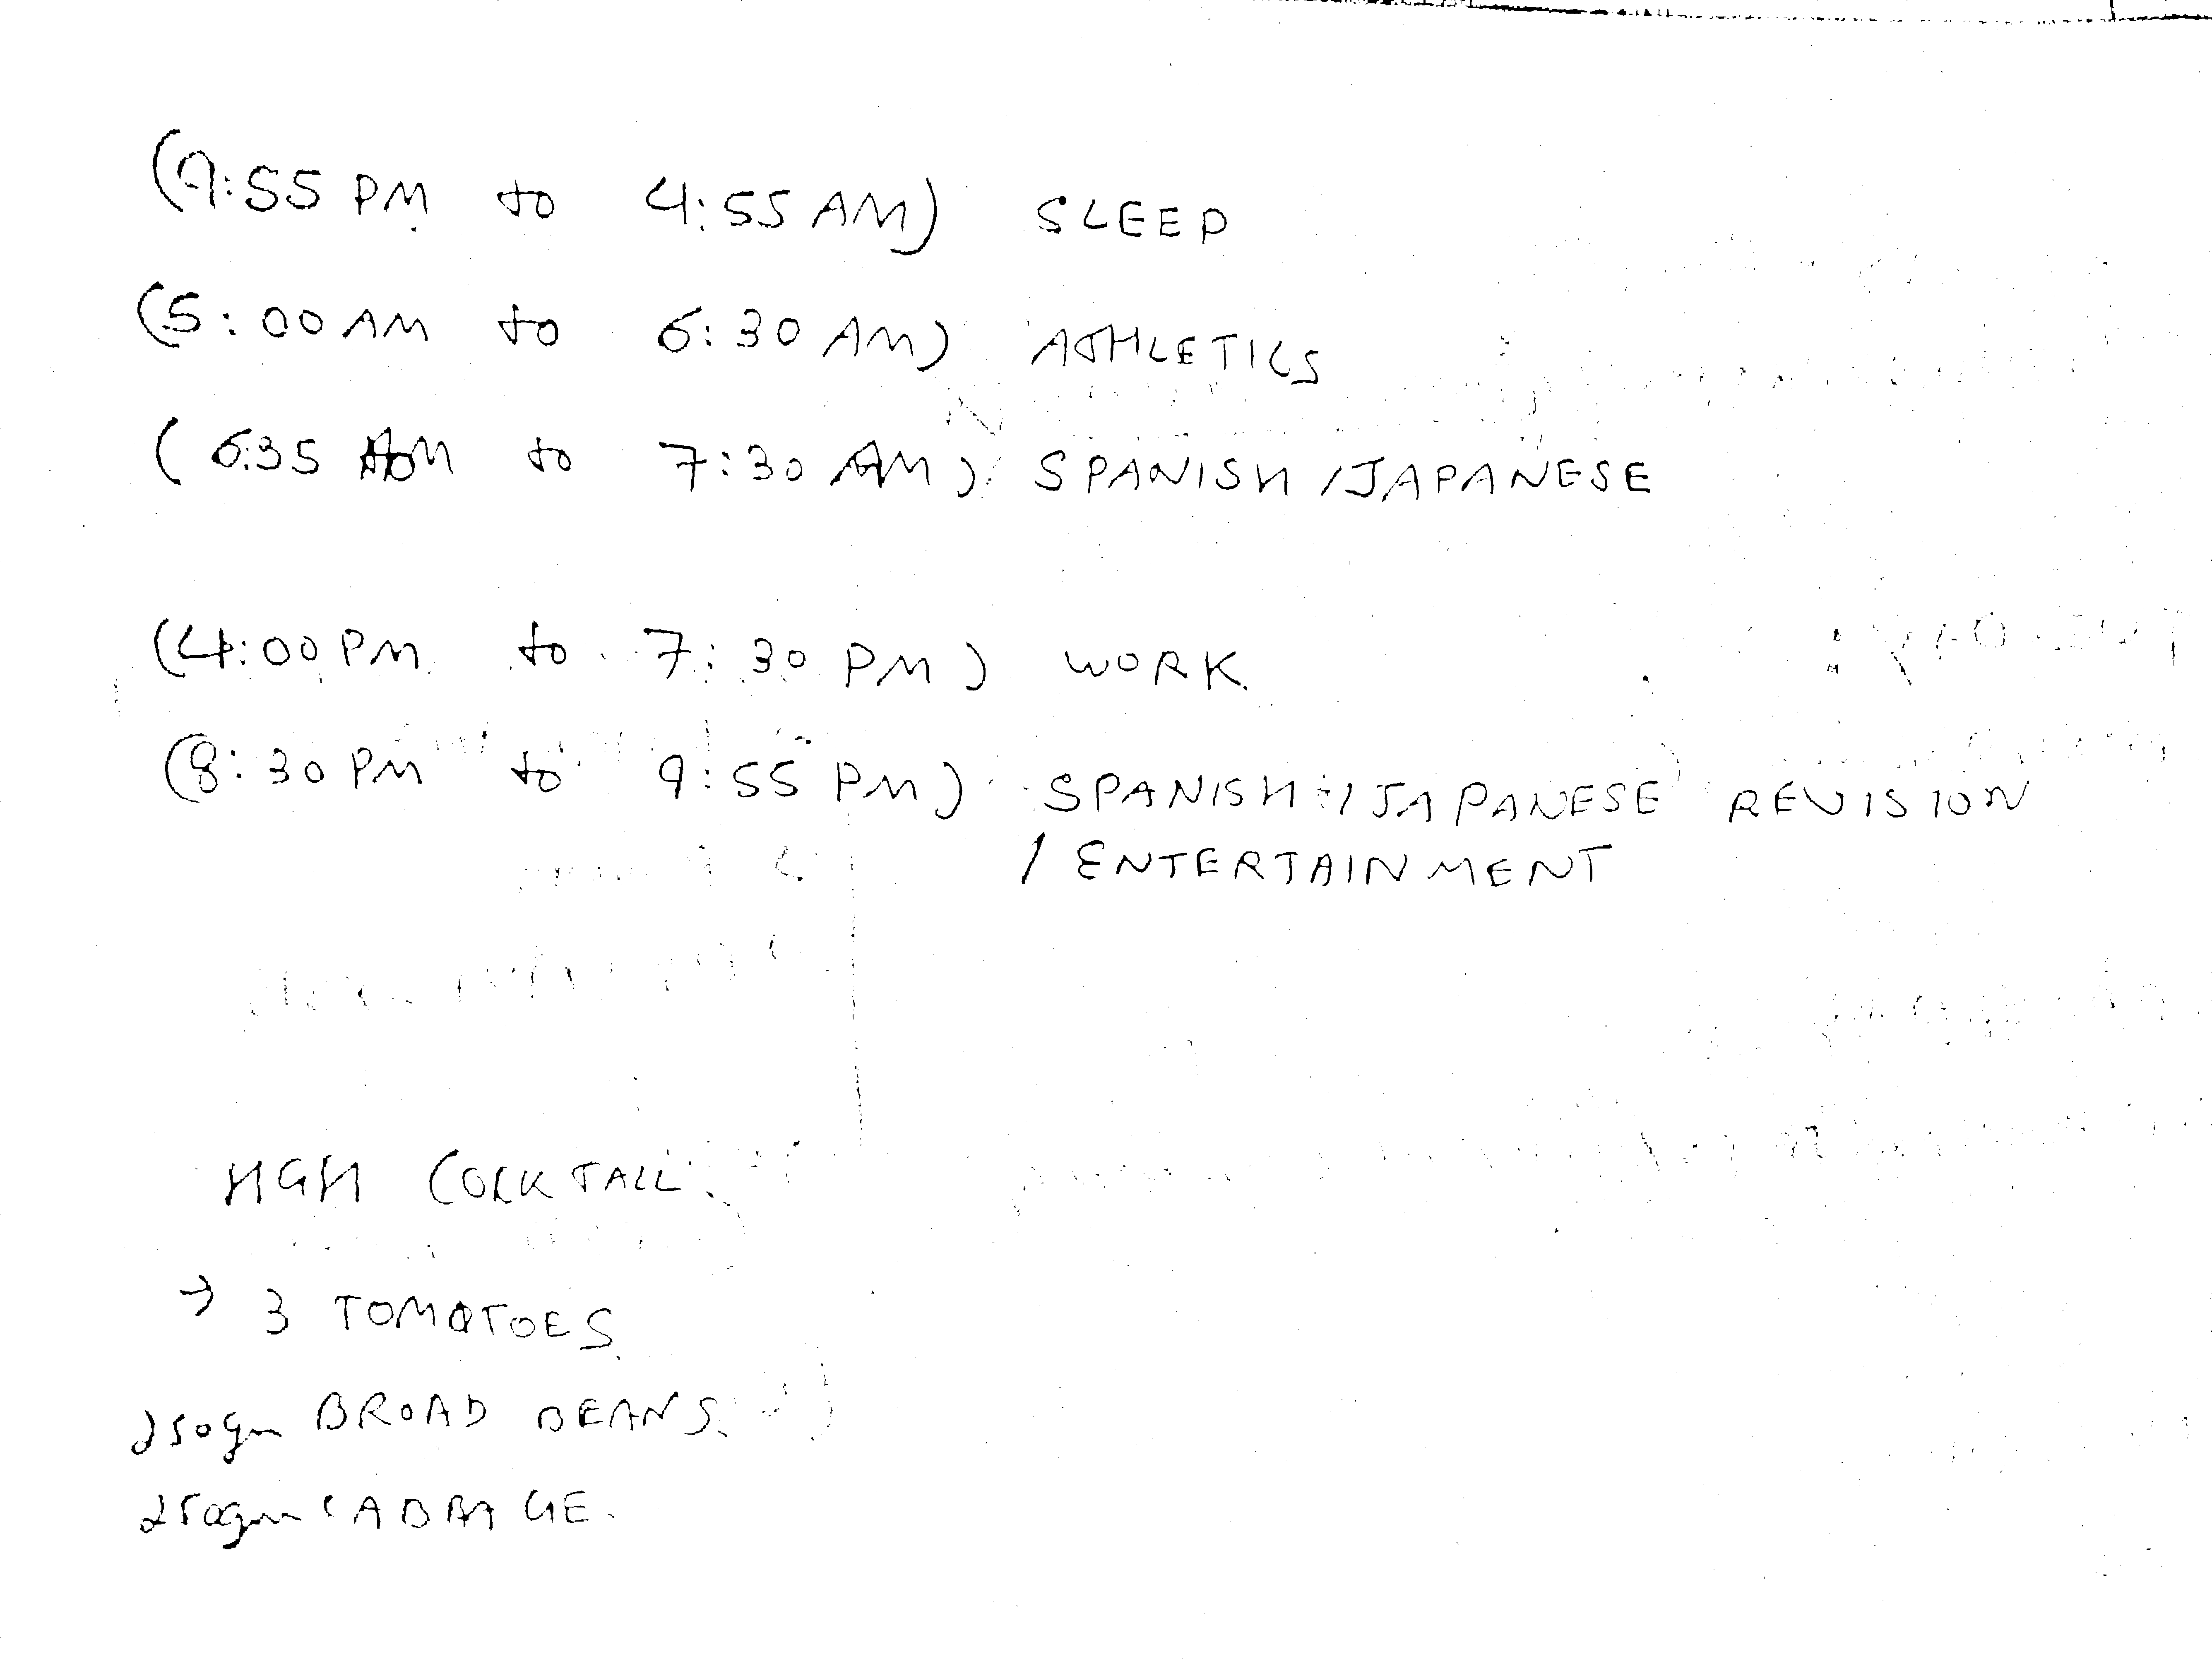 (9:55 PM to 4:55 AM) SLEEP
(5:00 AM to 6:30 AM) ATHLETICS
(6:35 AM to 7:30 AM) SPANISH /JAPANESE
(4:00 PM to 7:30 PM) WORK
(8:30 PM to 9:55 PM) SPANISH /JAPANESE REVISION
/ ENTERTAINMENT
HGH COCKTAIL
→ 3 TOMATOES
250gm BROAD BEANS
250gm CABBAGE.